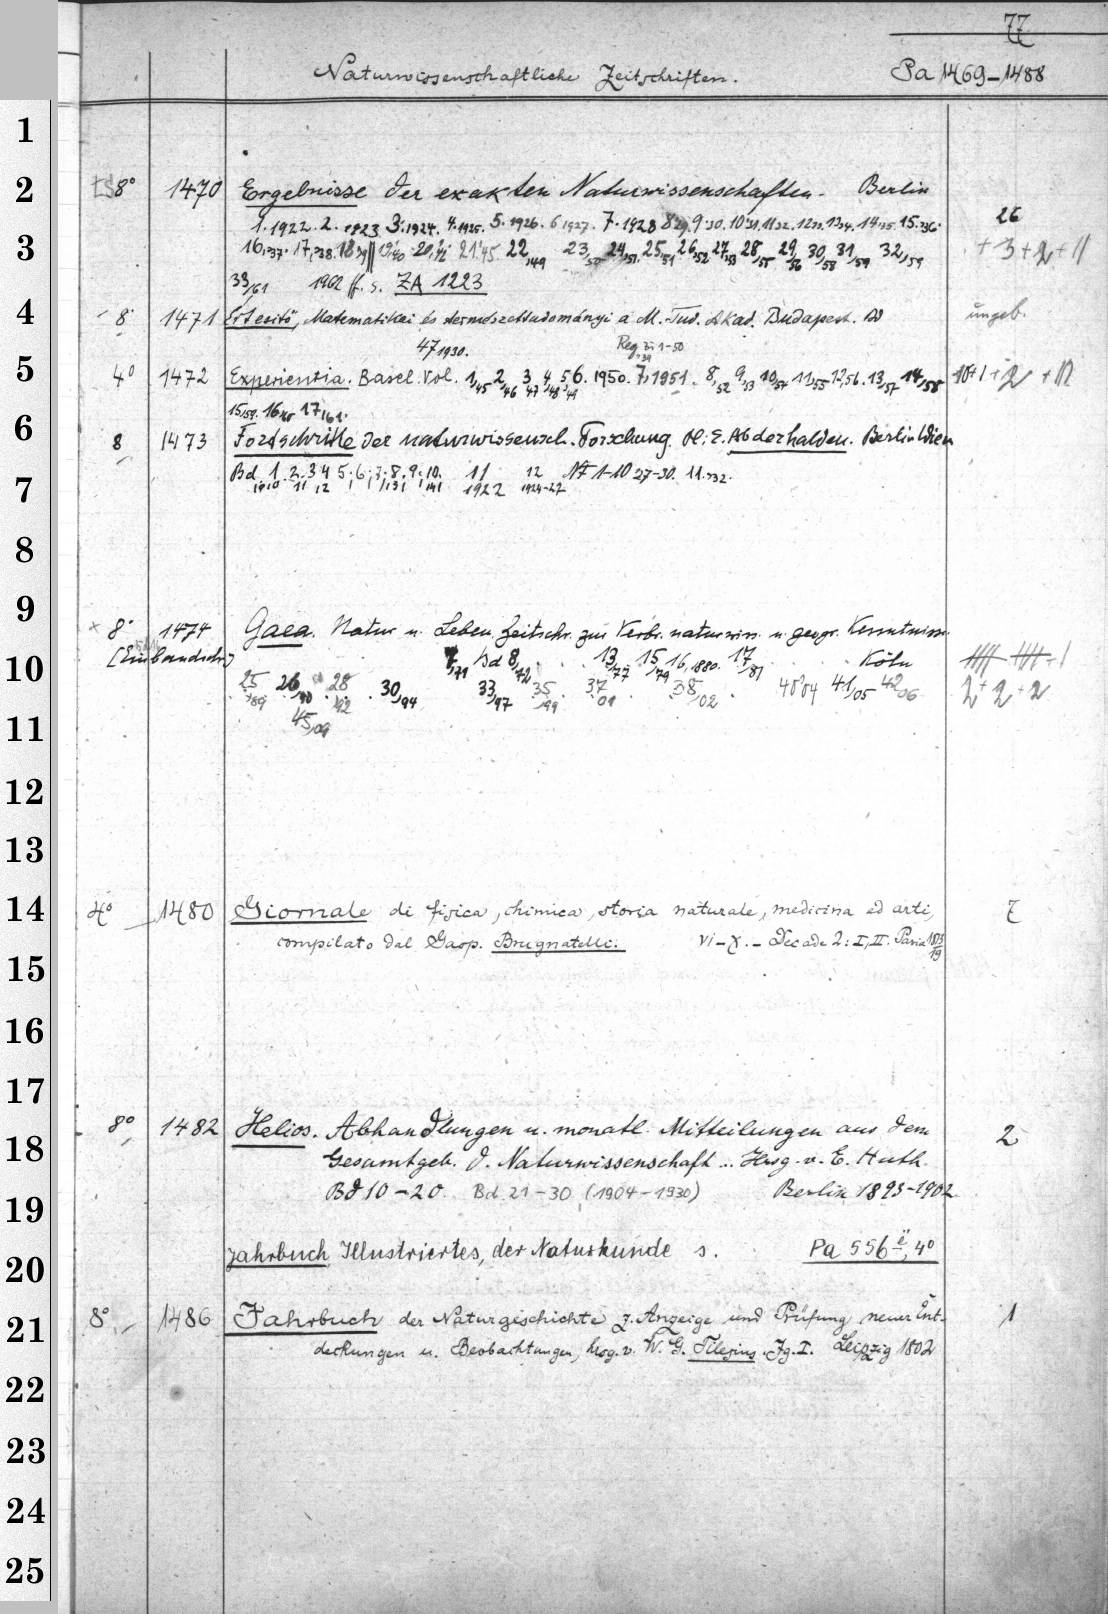 77
Naturwissenschaftliche Zeitschriften. Pa 1469–1488
1
2 LS 8° 1470 Ergebnisse der exakten Naturwissenschaften. Berlin
1.1922. 2. 1923 3.1924. 4.1925. 5.1926. 6 1927. 7.1928 8 29. 9.30. 10.31. 11.32. 12.33. 13.34. 14.35. 15.36. 26
3 16.37. 17.38. 18.39 19.40 20.42 21.45 22,49 23,50 24,51. 25,51 26,52 27,53 28,55 29,56 30,58 31,59 32,59 + 3+2+11
33/61 1962 ff. s. ZA 1223
4 8° 1471 Értesitő, Matematikai és természettudományi a M. Tud. Akad. Budapest. ungeb.
47 1930. Reg. zu 1–50
5 4° 1472 Experientia. Basel. Vol. 1,45 2,46 3,47 4,48 5,49 6. 1950. 7,1951. 8,52 9,53 10,54 11,55 12,56. 13,57 14,58 10+1+2 +
15,59. 16,60 17,61.
6 8 1473 Fortschritte der naturwissensch. Forschung. H. E. Abderhalden. Berlin Wien
7 Bd. 1. 2. 3 4 5. 6. 7. 8. 9. 10. 11 12 NF 1–10 27–30. 11.32.
1910 11 12 13 14 1922 1924–27
8
9 8° 1474 Gaea. Natur u. Leben. Zeitschr. zur Verbr. naturwiss. u. geogr. Kenntniss.
10 [Einbandschr] 7,71 Bd 8,72 13,77 15,79 16,1880. 17/81 Köln
25,89 26,90 28,92 30,94 33,97 35,99 37,01 38,02 40,04 41/05 42,06 2+2+2
11 45,09
12
13
14 4° 1480 Giornale di fisica, chimica, storia naturale, medicina ed arti, 7
compilato dal Gasp. Brugnatelli. VI–X. – Decade 2: I, II. Pavia 1813/19
15
16
17
18 8° 1482 Helios. Abhandlungen u. monatl. Mitteilungen aus dem 2
Gesamtgeb. d. Naturwissenschaft... Hrsg. v. E. Huth.
19 Bd 10–20. Bd. 21–30 (1904–1930) Berlin 1893–1902
20 Jahrbuch, Illustriertes, der Naturkunde s. Pa 556 ë, 4°
21 8° 1486 Jahrbuch der Naturgeschichte z. Anzeige und Prüfung neuer Ent- 1
deckungen u. Beobachtungen, hrsg. v. W. G. Tilesius. Jg. I. Leipzig 1802
22
23
24
25